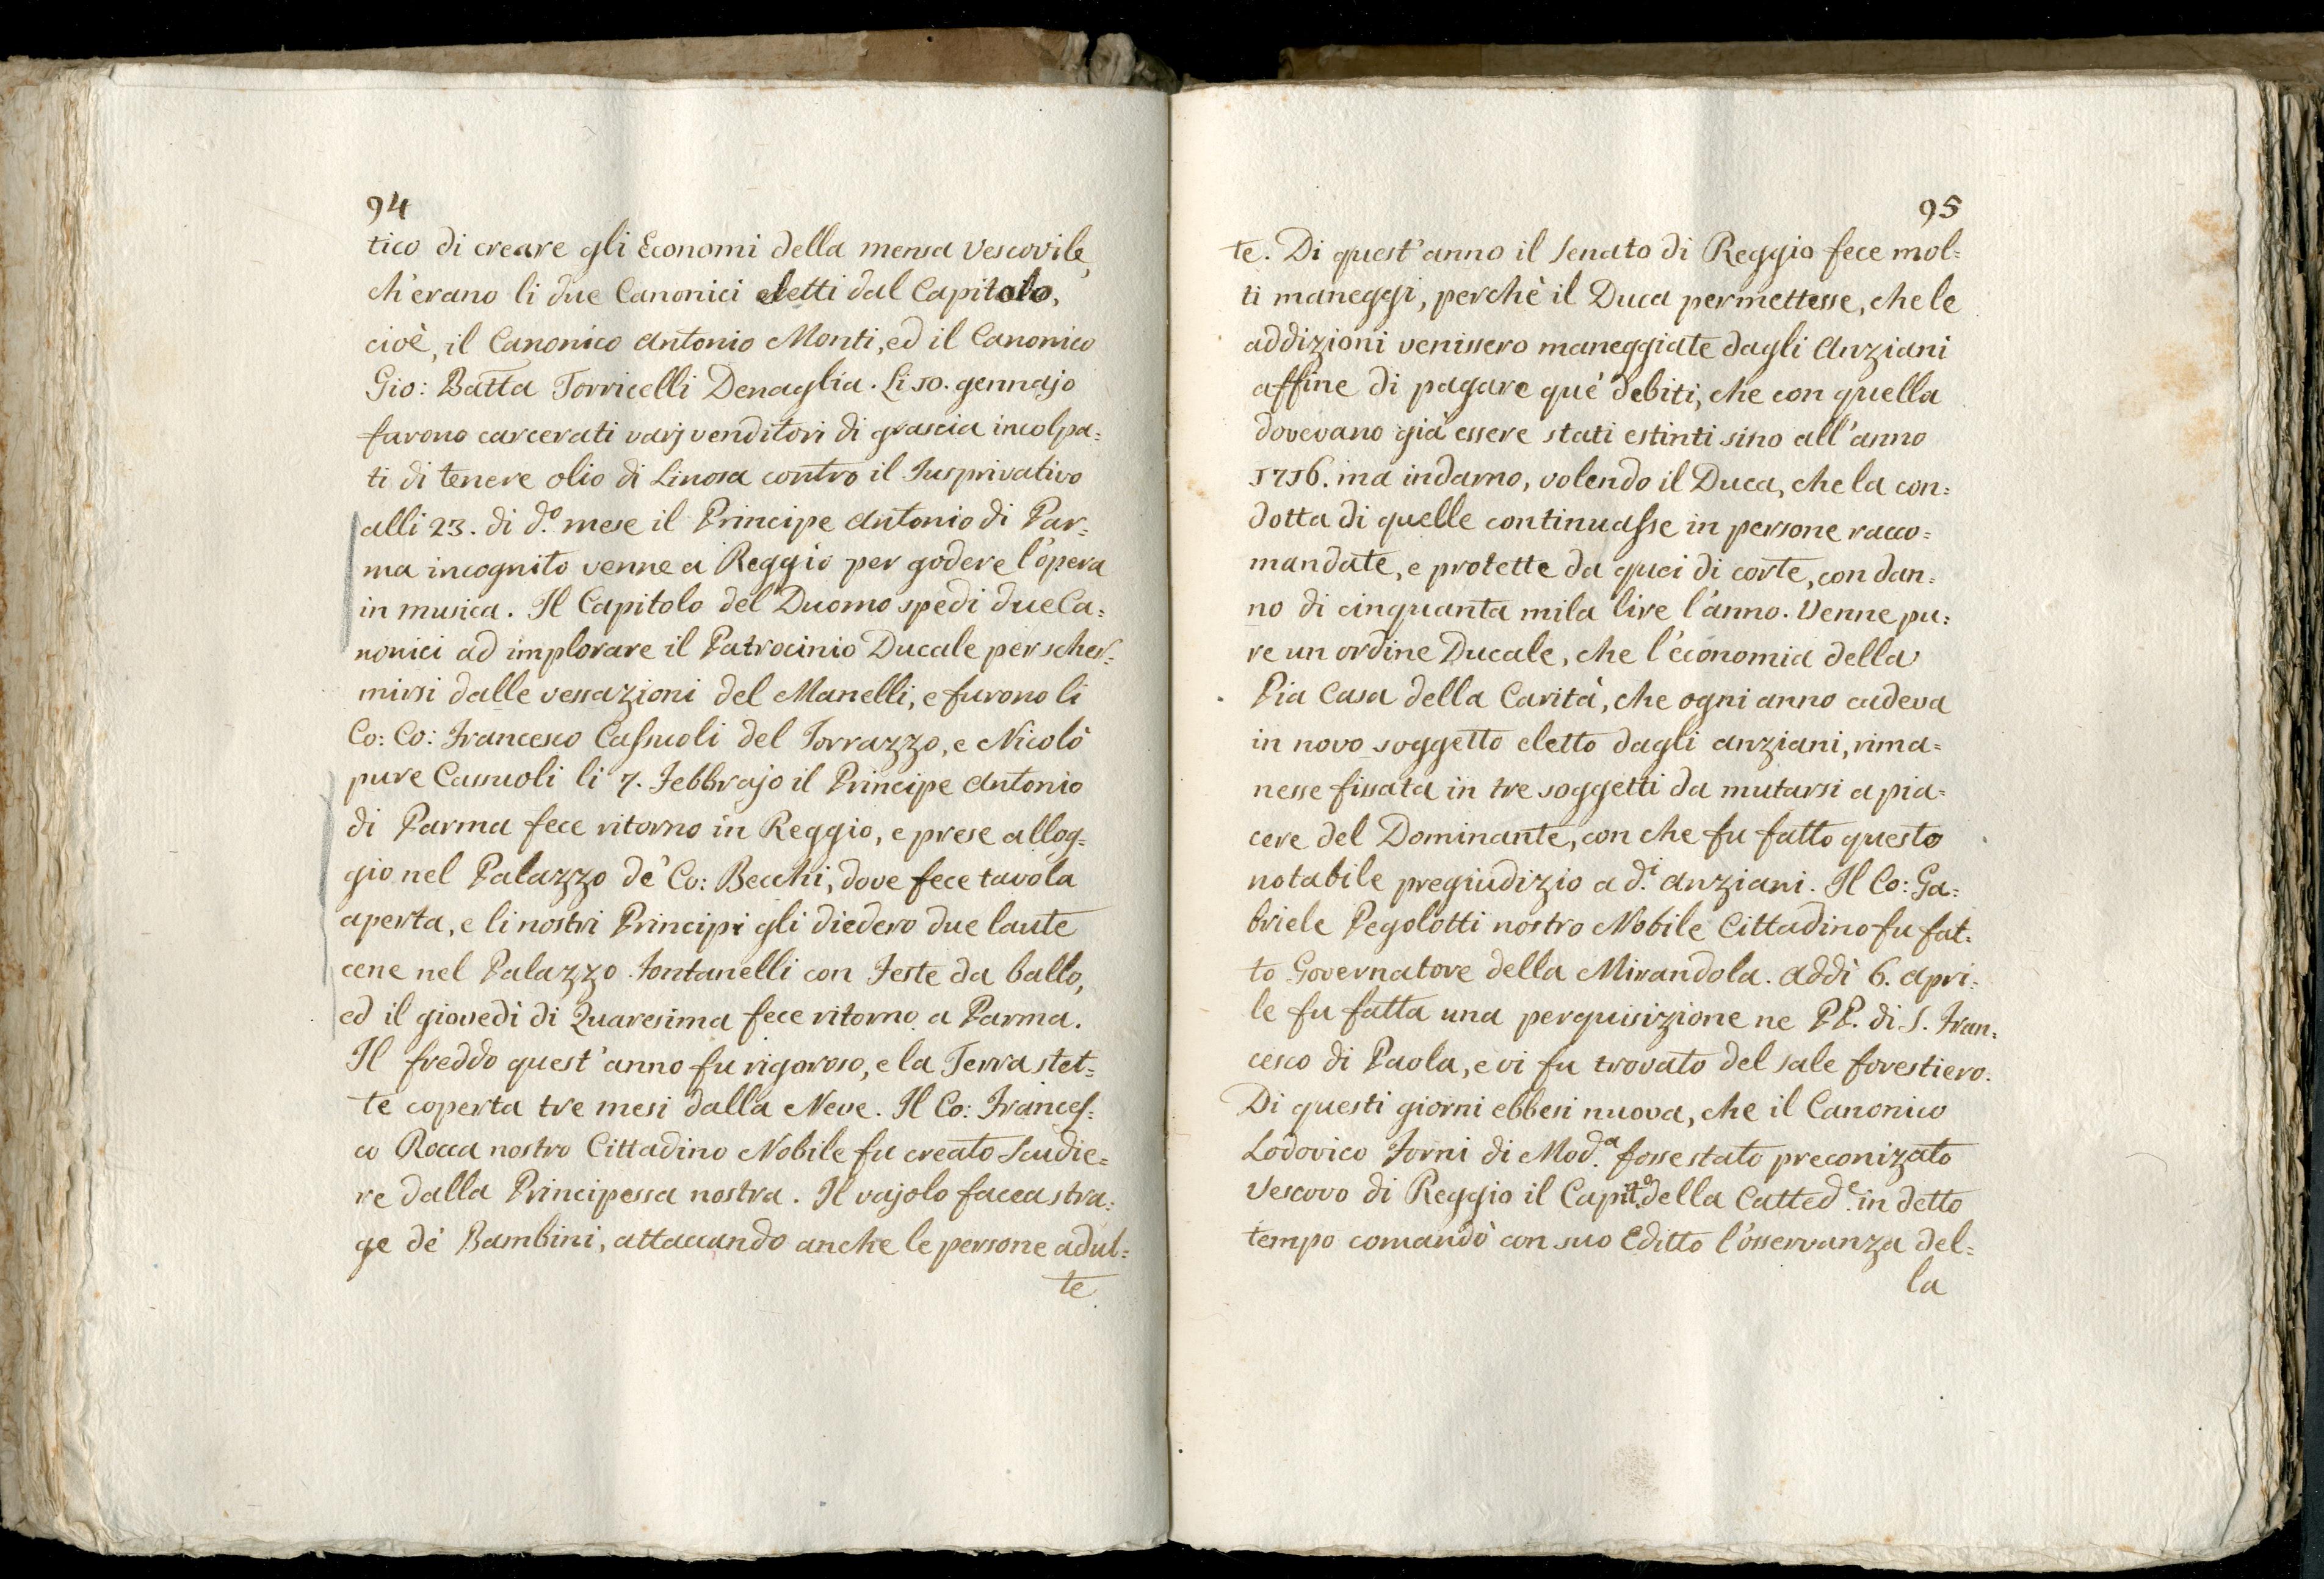 94
tico di creare gli Economi della mensa Vescovile,
ch'erano li due Canonici eletti dal Capitolo,
cioè, il Canonico Antonio Monti, ed il Canonico
Gio: Batta Torricelli Denaglia. Li 10. gennajo
furono carcerati varj venditori di grascia incolpa=
ti di tenere olio di Linosa contro il Jusprivativo
alli 23. di d.º mese il Principe Antonio di Par=
ma incognito venne a Reggio per godere l'opera
in musica. Il Capitolo del Duomo spedì due Ca=
nonici ad implorare il Patrocinio Ducale per scher=
mirsi dalle vessazioni del Manelli, e furono li
Co: Co: Francesco Cassuoli del Torrazzo, e Nicolò
pure Cassuoli li 7. Febbrajo il Principe Antonio
di Parma fece ritorno in Reggio, e prese allog=
gio nel Palazzo de' Co: Becchi, dove fece tavola
aperta, e li nostri Principi gli diedero due laute
cene nel Palazzo Fontanelli con Feste da ballo,
ed il giovedì di Quaresima fece ritorno a Parma.
Il freddo quest'anno fu rigoroso, e la Terra stet=
te coperta tre mesi dalla Neve. Il Co: Frances=
co Rocca nostro Cittadino Nobile fu creato Scudie=
re dalla Principessa nostra. Il vajolo facea stra=
ge de' Bambini, attaccando anche le persone adul=
te
95
te. Di quest'anno il Senato di Reggio fece mol=
ti maneggi, perchè il Duca permettesse, che le
addizioni venissero maneggiate dagli Anziani
affine di pagare que' debiti, che con quella
dovevano già essere stati estinti sino all'anno
1716. ma indarno, volendo il Duca, che la con=
dotta di quelle continuasse in persone racco=
mandate, e protette da quei di corte, con dan=
no di cinquanta mila lire l'anno. Venne pu=
re un ordine Ducale, che l'economia della
Pia Casa della Carità, che ogni anno cadeva
in novo soggetto eletto dagli anziani, rima=
nesse fissata in tre soggetti da mutarsi a pia=
cere del Dominante, con che fu fatto questo
notabile pregiudizio a d.i Anziani. Il Co: Ga=
briele Pegolotti nostro Nobile Cittadino fu fat=
to Governatore della Mirandola. Addì 6. Apri=
le fu fatta una perquisizione ne PP. di S. Fran=
cesco di Paola, e vi fu trovato del sale forestiero.
Di questi giorni ebbesi nuova, che il Canonico
Lodovico Forni di Mod.a fosse stato preconizato
Vescovo di Reggio il Capit.º della Catted.e in detto
tempo comandò con suo Editto l'osservanza del=
la